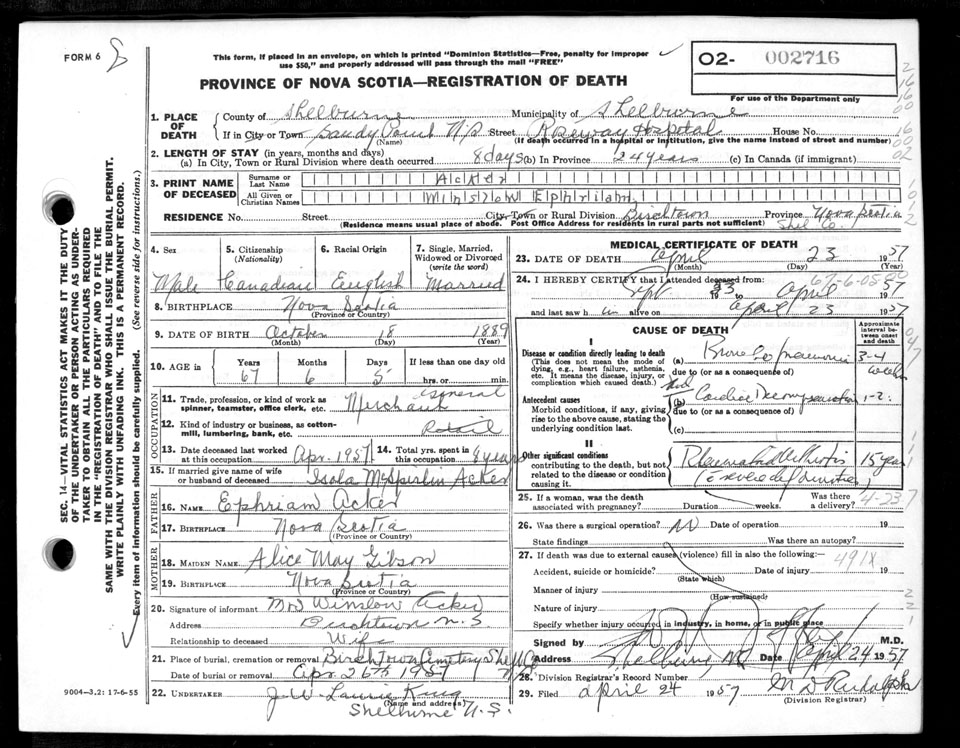 FORM 6
This form, if placed in an envelope, on which is printed "Dominion Statistics—Free, penalty for improper
use $50," and properly addressed will pass through the mail "FREE"
PROVINCE OF NOVA SCOTIA—REGISTRATION OF DEATH
O2- 002716
For use of the Department only
1. PLACE OF DEATH
County of Shelburne Municipality of Shelburne
If in City or Town Sandy Point N/S Street Roseway Hospital House No.
(Name) (If death occurred in a hospital or institution, give the name instead of street and number)
2. LENGTH OF STAY (in years, months and days)
(a) In City, Town or Rural Division where death occurred 8 days (b) In Province 24 years (c) In Canada (if immigrant)
3. PRINT NAME OF DECEASED
Surname or Last Name Acker
All Given or Christian Names Winslow Ephriam
RESIDENCE No. Street City, Town or Rural Division Birchtown Province Nova Scotia
(Residence means usual place of abode. Post Office Address for residents in rural parts not sufficient) Shel Co.
4. Sex
5. Citizenship (Nationality)
6. Racial Origin
7. Single, Married, Widowed or Divorced (write the word)
Male Canadian English Married
8. BIRTHPLACE Nova Scotia
(Province or Country)
9. DATE OF BIRTH October 18 1889
(Month) (Day) (Year)
10. AGE
Years Months Days If less than one day old
67 6 5 hrs. or min.
OCCUPATION
11. Trade, profession, or kind of work as spinner, teamster, office clerk, etc. Merchant General
12. Kind of industry or business, as cotton-mill, lumbering, bank, etc. Retail
13. Date deceased last worked at this occupation Apr. 1957
14. Total yrs. spent in this occupation 8 years
15. If married give name of wife or husband of deceased Isola Acker
FATHER
16. NAME Ephriam Acker
17. BIRTHPLACE Nova Scotia
MOTHER
18. MAIDEN NAME Alice May Gibson
19. BIRTHPLACE Nova Scotia
(Province or Country)
20. Signature of informant Mrs Winslow Acker
Address Birchtown N.S
Relationship to deceased Wife
21. Place of burial, cremation or removal Birchtown Cemetery Shel Co
Date of burial or removal Apr. 26th 1957
22. UNDERTAKER J.W. Laurie King
(Name and address)
Shelburne N.S.
MEDICAL CERTIFICATE OF DEATH
23. DATE OF DEATH April 23 1957
(Month) (Day) (Year)
24. I HEREBY CERTIFY that I attended deceased from:
19 to April 1957
and last saw h im alive on April 23 1957
CAUSE OF DEATH
Approximate interval between onset and death
I
Disease or condition directly leading to death
(This does not mean the mode of dying, e.g., heart failure, asthenia, etc. It means the disease, injury, or complication which caused death.)
(a) Broncho pneumonia 3-4
due to (or as a consequence of)
Antecedent causes
Morbid conditions, if any, giving rise to the above cause, stating the underlying condition last.
(b) Cardiac Decompensation 1-2
due to (or as a consequence of)
(c)
II
Other significant conditions
contributing to the death, but not related to the disease or condition causing it.
Rheumatoid Arthritis 15 years
(severe deformities)
25. If a woman, was the death associated with pregnancy? Duration weeks. Was there a delivery?
4-23
26. Was there a surgical operation? No Date of operation 19
State findings Was there an autopsy?
27. If death was due to external causes (violence) fill in also the following:
491X
Accident, suicide or homicide? Date of injury 19
(State which)
Manner of injury
(How sustained)
Nature of injury
Specify whether injury occurred in industry, in home, or in public place
Signed by M.D.
Address Shelburne NS Date April 24 1957
28. Division Registrar's Record Number
29. Filed April 24 1957 M D Rudolph
(Division Registrar)
SEC. 14—VITAL STATISTICS ACT MAKES IT THE DUTY
OF THE UNDERTAKER OR PERSON ACTING AS UNDER-
TAKER TO OBTAIN ALL THE PARTICULARS REQUIRED
IN THE "REGISTRATION OF DEATH" AND TO FILE THE
SAME WITH THE DIVISION REGISTRAR WHO SHALL ISSUE THE BURIAL PERMIT.
WRITE PLAINLY WITH UNFADING INK. THIS IS A PERMANENT RECORD.
Every item of information should be carefully supplied. (See reverse side for instructions.)
9004—3,2: 17-6-55